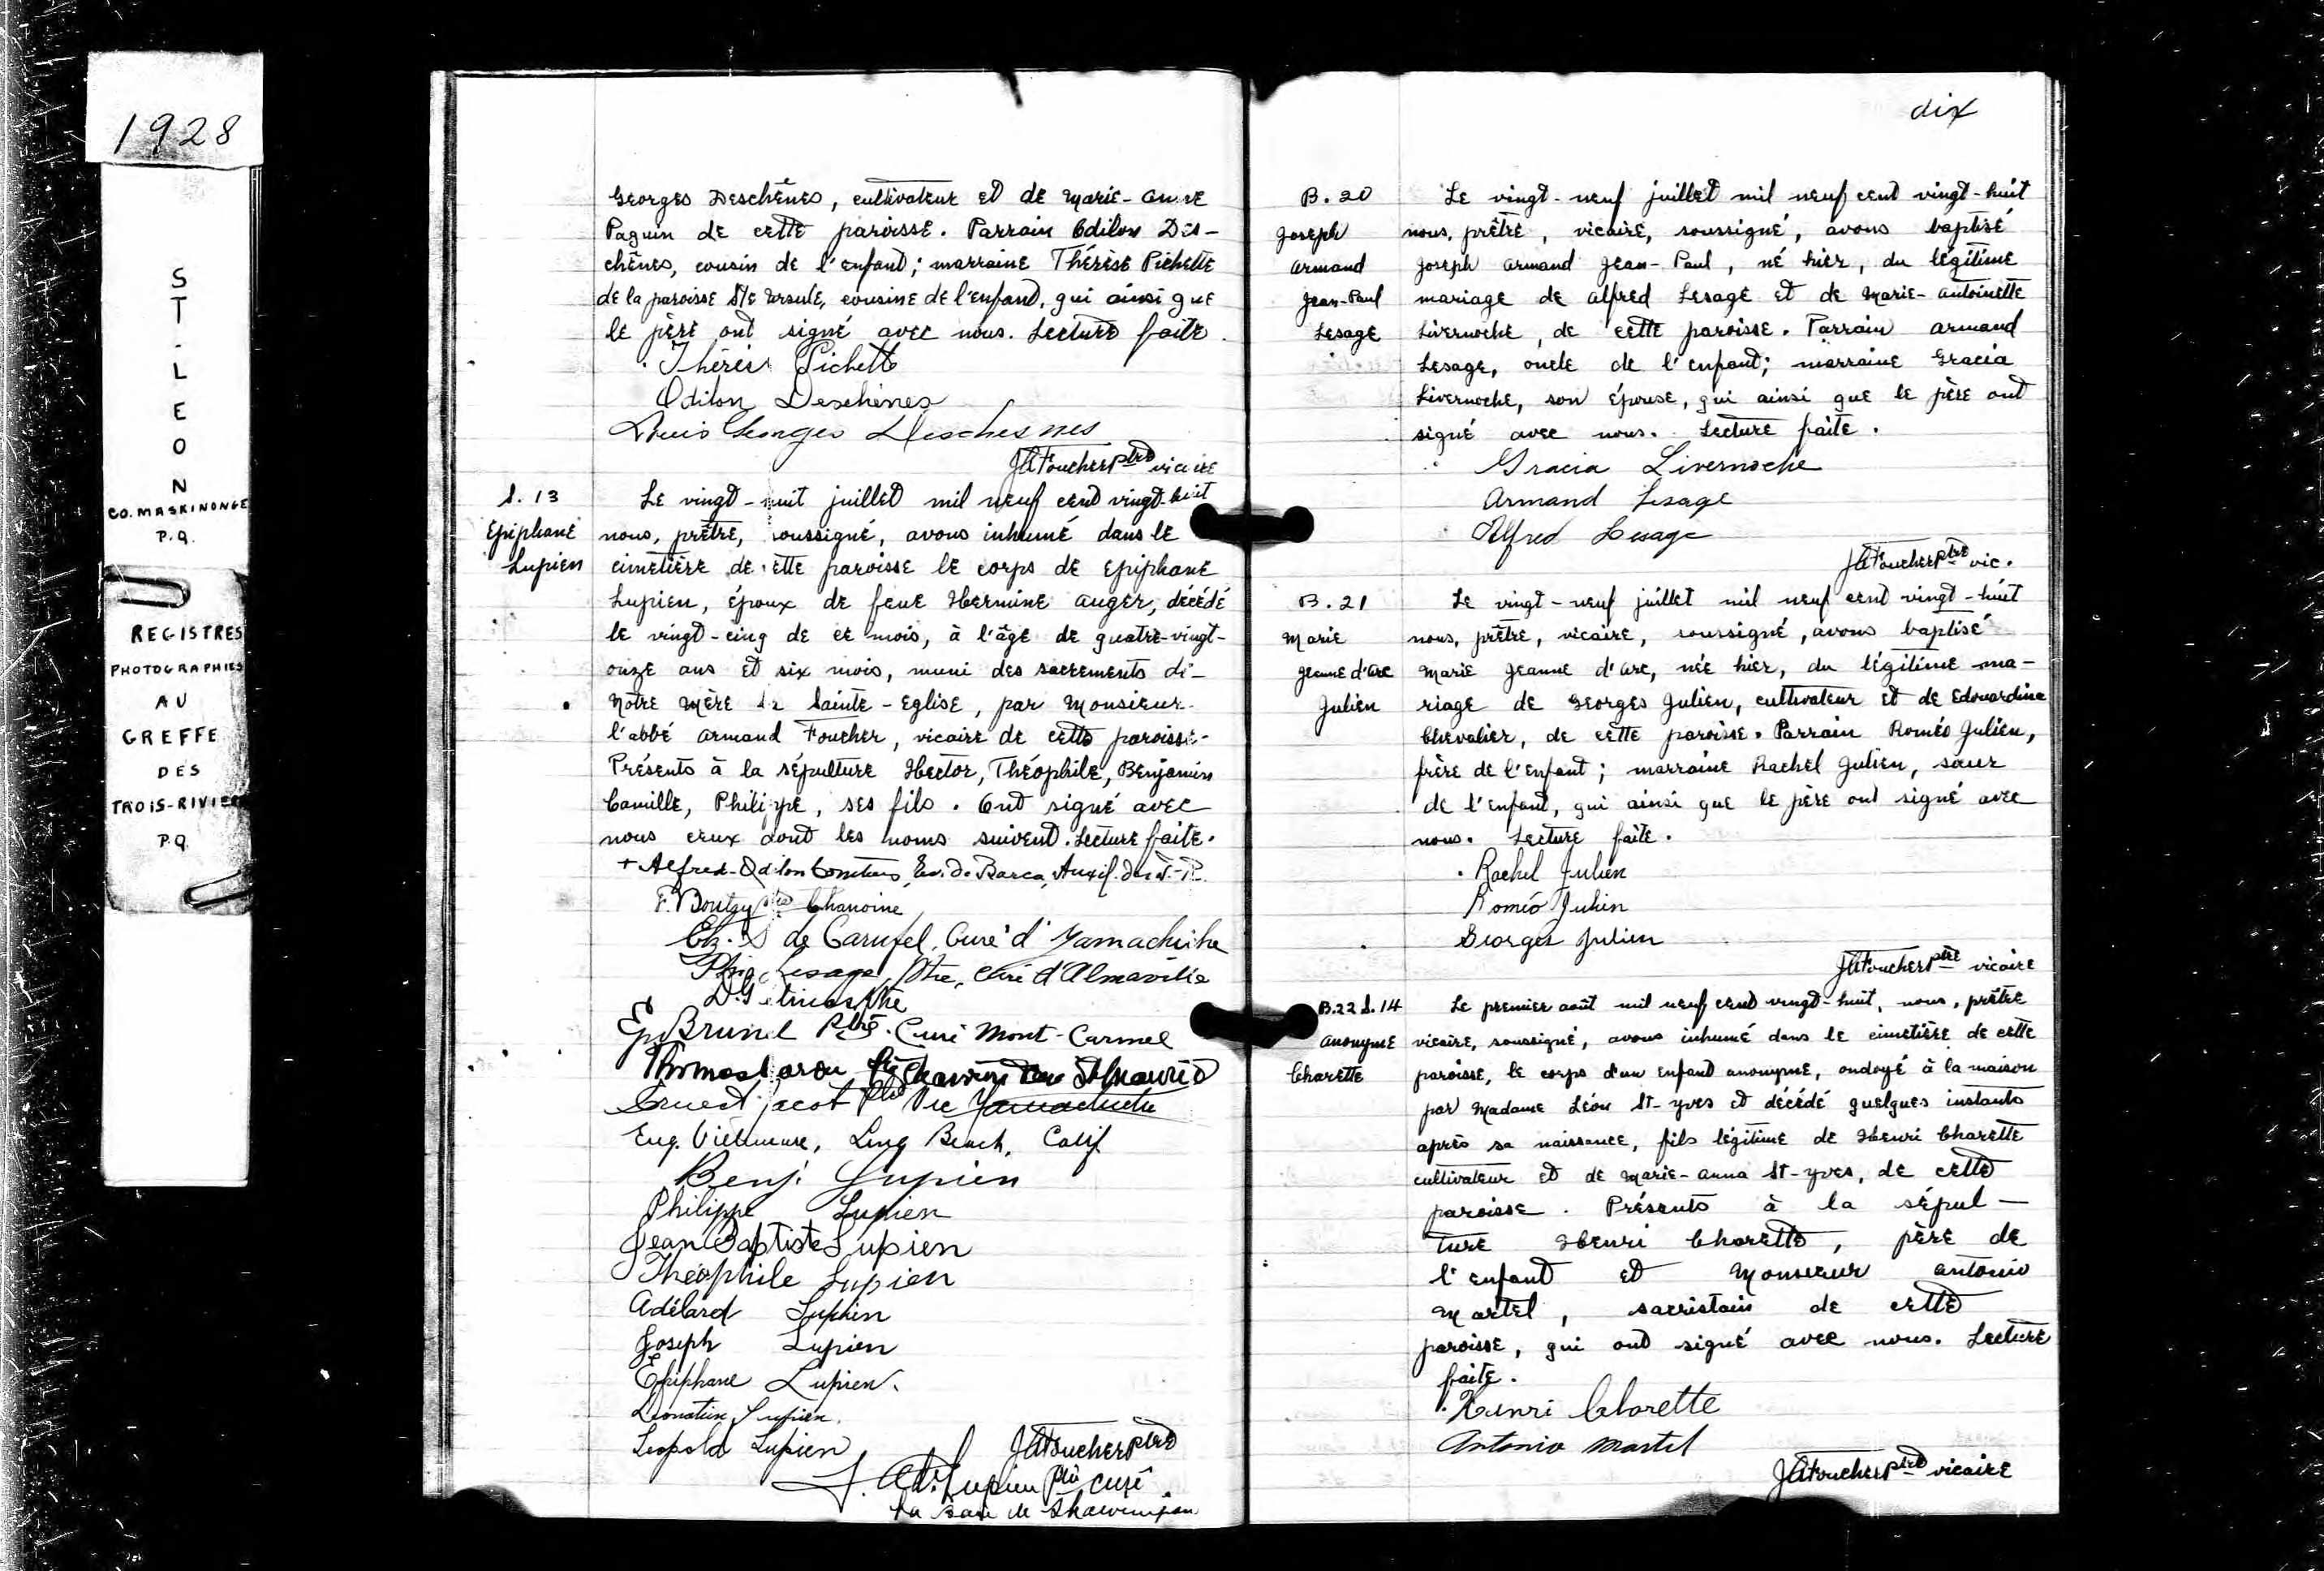 1928
S
T
.
L
E
O
N
CO. MASKINONGE
P.Q.
REGISTRES
PHOTOGRAPHIES
AU
GREFFE
DES
TROIS-RIVIE
P.Q.
Georges Deschênes, cultivateur et de Marie-Anne
Paquin de cette paroisse. Parrain Odilon Des-
chênes, cousin de l'enfant; marraine Thérèse Pichette
de la paroisse Ste Ursule, cousine de l'enfant, qui ainsi que
le père ont signé avec nous. Lecture faite.
Thérèse Pichette
Odilon Deschênes
Louis Georges Deschesnes
JAFoucher ptre vicaire
S. 13
Epiphane
Lupien
Le vingt-huit juillet mil neuf cent vingt-huit
nous, prêtre, soussigné, avons inhumé dans le
cimetière de cette paroisse le corps de Epiphane
Lupien, époux de feue Hermine Auger, décédé
le vingt-cinq de ce mois, à l'âge de quatre-vingt-
onze ans et six mois, muni des sacrements de
Notre Mère la Sainte-Eglise, par Monsieur
l'abbé Armand Foucher, vicaire de cette paroisse.
Présents à la sépulture Hector, Théophile, Benjamin
Camille, Philippe, ses fils. Ont signé avec
nous ceux dont les noms suivent. Lecture faite.
+ Alfred-Odilon Comtois, Ev. de Barca, Auxil. des T.-R.
F. Boutzy ptre Chanoine
Ch. D de Carufel, Curé d'Yamachiche
Lesage, Ptre, Curé d'Almaville
Ptre
Ep Brunel Ptre. Curé Mont-Carmel
Thomas Caron Ptre Chanoine
Ernest Jacob Ptre Vic Yamachiche
Eug. Villemure, Long Beach, Calif
Benj. Lupien
Philippe Lupien
Jean Baptiste Lupien
Théophile Lupien
Adélard Lupien
Joseph Lupien
Epiphane Lupien.
Donatien Lupien.
Leopold Lupien
JAFoucher ptre
J. Ad. Lupien Ptre curé
La Baie de Shawinigan
dix
B. 20
Joseph
Armand
Jean-Paul
Lesage
Le vingt-neuf juillet mil neuf cent vingt-huit
nous, prêtre, vicaire, soussigné, avons baptisé
Joseph Armand Jean-Paul, né hier, du légitime
mariage de Alfred Lesage et de Marie-Antoinette
Livernoche, de cette paroisse. Parrain Armand
Lesage, oncle de l'enfant; marraine Gracia
Livernoche, son épouse, qui ainsi que le père ont
signé avec nous. Lecture faite.
Gracia Livernoche
Armand Lesage
Alfred Lesage
JAFoucher ptre vic.
B. 21
Marie
Jeanne d'Arc
Julien
Le vingt-neuf juillet mil neuf cent vingt-huit
nous, prêtre, vicaire, soussigné, avons baptisé
Marie Jeanne d'Arc, née hier, du légitime ma-
riage de Georges Julien, cultivateur et de Edouardina
Chevalier, de cette paroisse. Parrain Roméo Julien,
frère de l'enfant; marraine Rachel Julien, sœur
de l'enfant, qui ainsi que le père ont signé avec
nous. Lecture faite.
Rachel Julien
Roméo Julien
Georges Julien
JAFoucher ptre vicaire
B.22 S.14
Anonyme
Charette
Le premier août mil neuf cent vingt-huit, nous, prêtre
vicaire, soussigné, avons inhumé dans le cimetière de cette
paroisse, le corps d'un enfant anonyme, ondoyé à la maison
par Madame Léon St-Yves et décédé quelques instants
après sa naissance, fils légitime de Henri Charette
cultivateur et de Marie-Anna St-Yves, de cette
paroisse. Présents à la sépul-
ture Henri Charette, père de
l'enfant et Monsieur Antonio
Martel, sacristain de cette
paroisse, qui ont signé avec nous. Lecture
faite.
Henri Charette
Antonio Martel
JAFoucher ptre vicaire